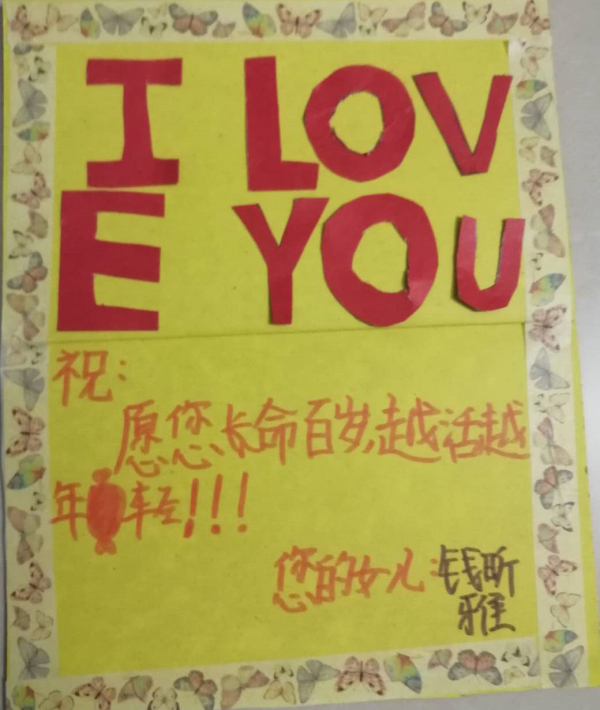 I LOV
E YOU
祝：
愿您长命百岁，越活越
年轻！！！
您的女儿：钱昕
雅